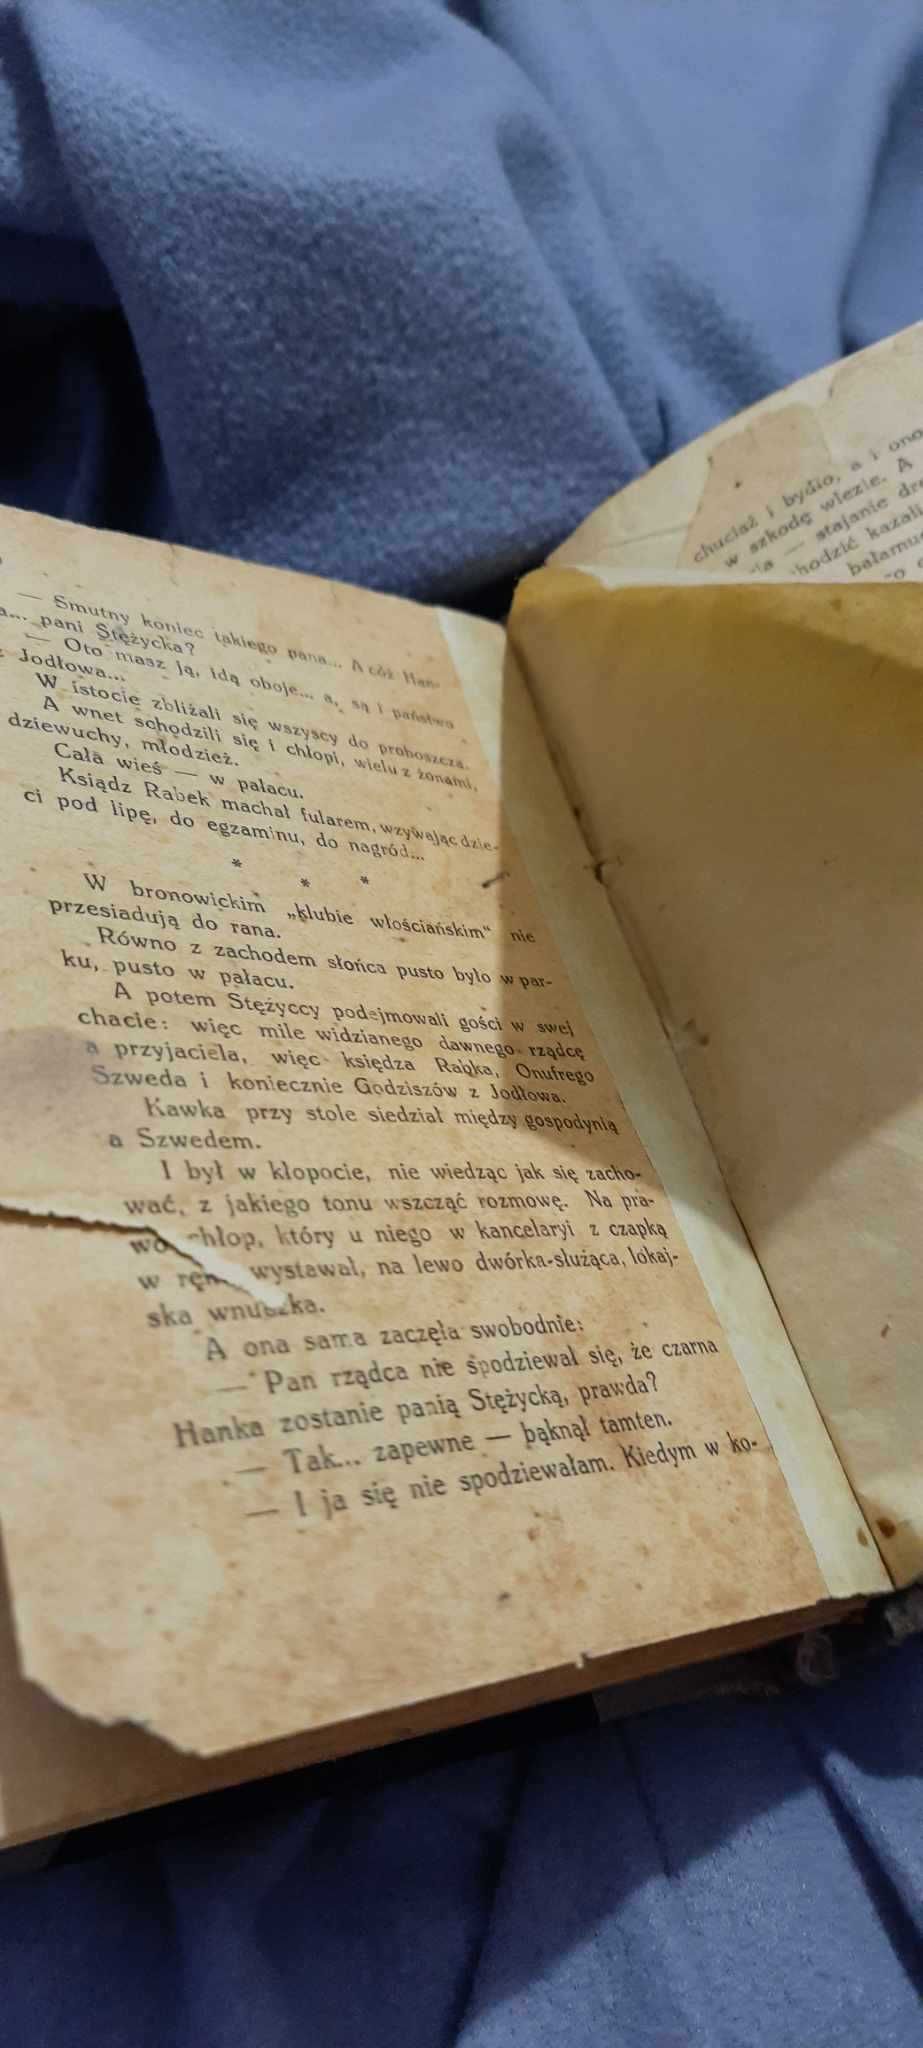 — Smutny koniec takiego pana... A cóż Han-
a... pani Stężycka?
— Oto masz ją, idą oboje... a, są i państwo
z Jodłowa...
W istocie zbliżali się wszyscy do proboszcza.
A wnet schodzili się i chłopi, wielu z żonami,
dziewuchy, młodzież.
Cała wieś — w pałacu.
Ksiądz Rabek machał fularem, wzywając dzie-
ci pod lipę, do egzaminu, do nagród...
* * *
W bronowickim „klubie włościańskim" nie
przesiadują do rana.
Równo z zachodem słońca pusto było w par-
ku, pusto w pałacu.
A potem Stężyccy podejmowali gości w swej
chacie: więc mile widzianego dawnego rządcę
a przyjaciela, więc księdza Rabka, Onufrego
Szweda i koniecznie Godziszów z Jodłowa.
Kawka przy stole siedział między gospodynią
a Szwedem.
I był w kłopocie, nie wiedząc jak się zacho-
wać, z jakiego tonu wszcząć rozmowę. Na pra-
wo chłop, który u niego w kancelaryi z czapką
w ręku wystawał, na lewo dwórka-służąca, lokaj-
ska wnuczka.
A ona sama zaczęła swobodnie:
— Pan rządca nie spodziewał się, że czarna
Hanka zostanie panią Stężycką, prawda?
— Tak... zapewne — bąknął tamten.
— I ja się nie spodziewałam. Kiedym w ko-
chuciaż i bydło, a i ono
w szkodę wlezie. A
— stajanie
hodzić kazali